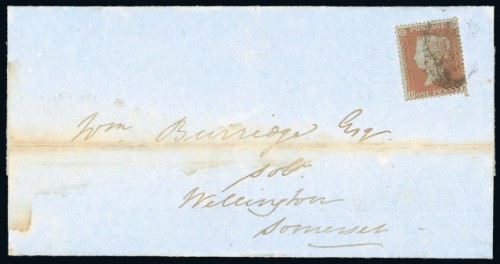 POSTAGE
ONE PENNY
Wm Burridge Esq
Solr
Wellington
Somerset